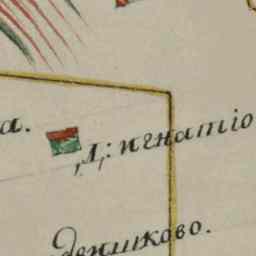 а.
Д: игнатіо
дениково.